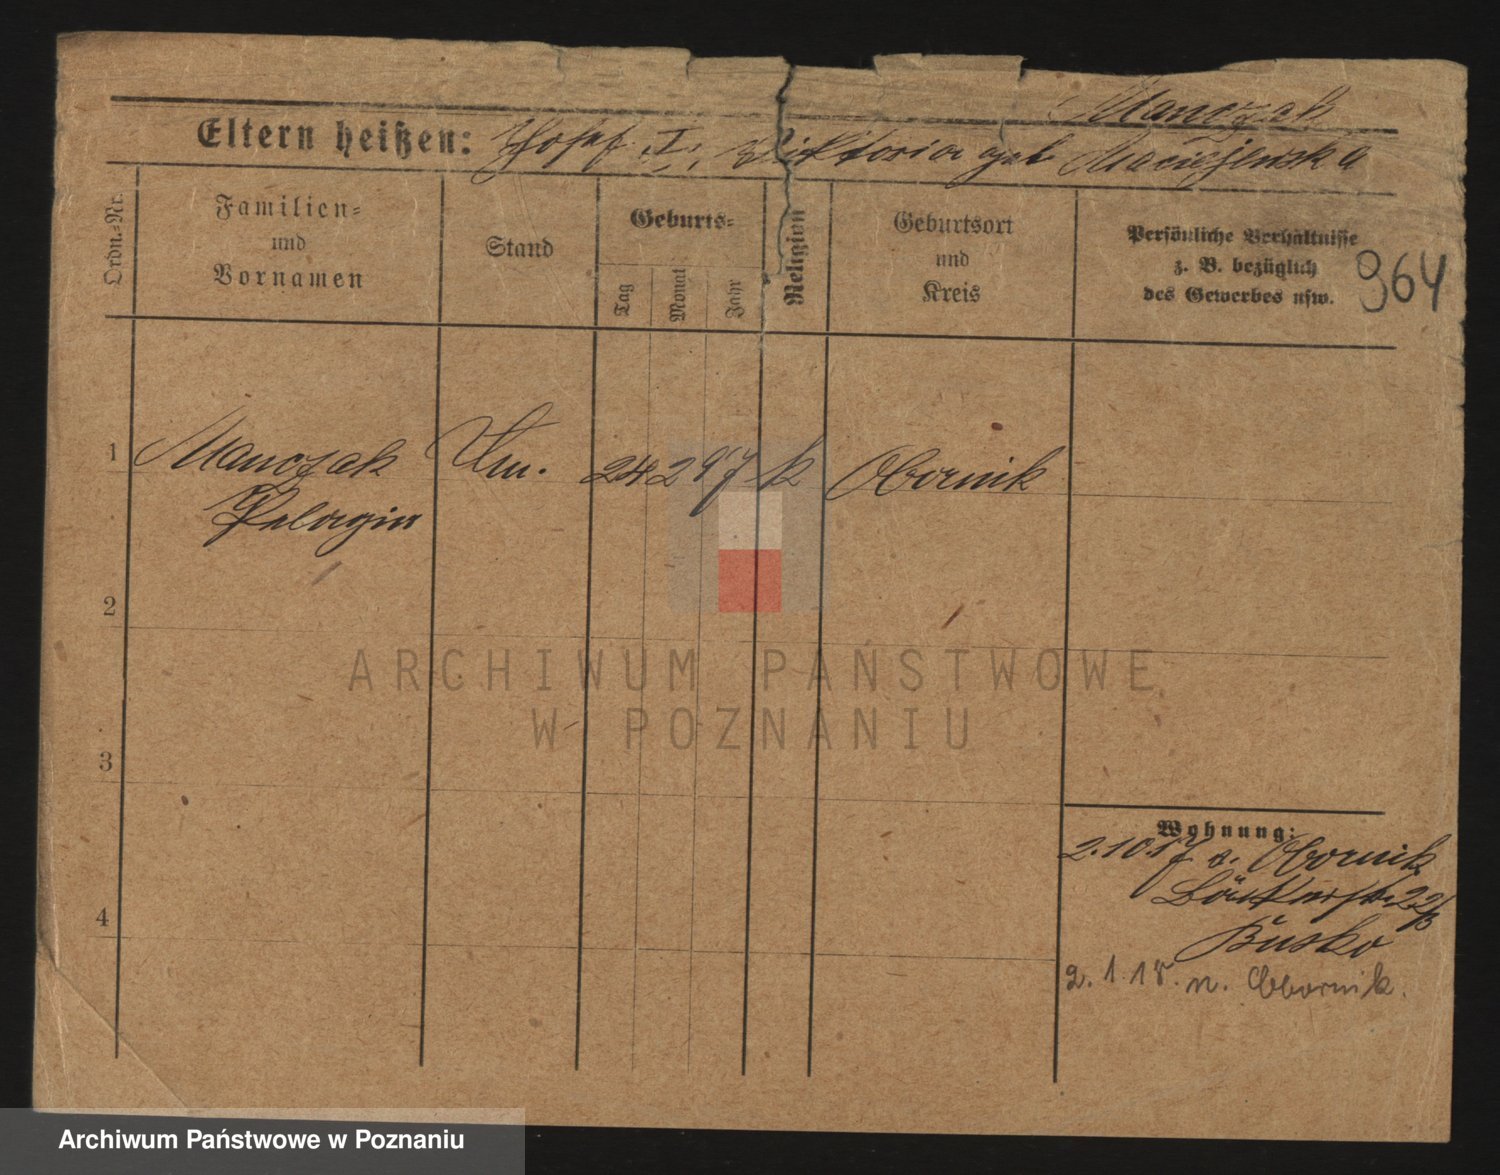 Manczak
Eltern heißen: Josef I, Viktoria geb Maciejewska
Ordn.-Nr.
Familien-
und
Vornamen
Stand
Geburts-
Tag
Monat
Jahr
Religion
Geburtsort
und
Kreis
Persönliche Verhältnisse
z. B. bezüglich
des Gewerbes usw.
964
1 Manczak 24 2 97 k Obornik
Pelagia
2
3
4
Wohnung:
2.10.17 v. Obornik
22/
Busko
2.1.18. n. Obornik.
ARCHIWUM PAŃSTWOWE
W POZNANIU
Archiwum Państwowe w Poznaniu